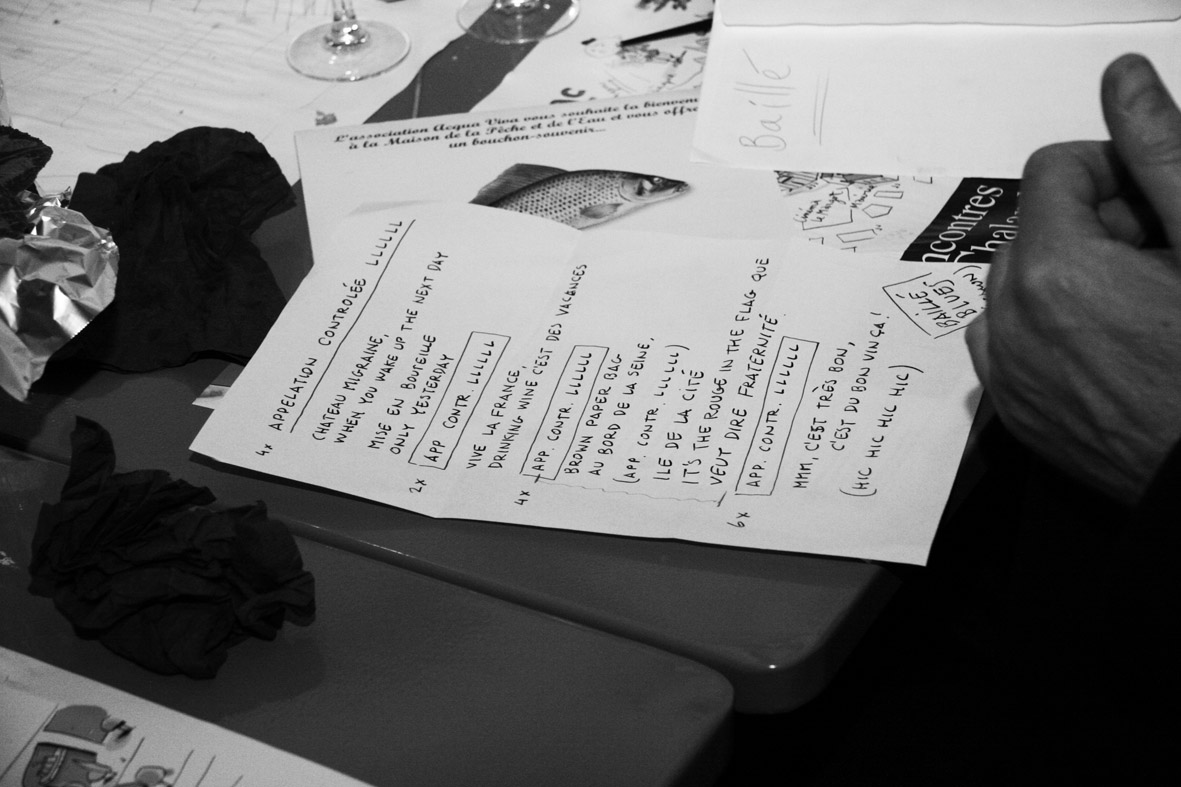 L'association Acqua Viva vous souhaite la bienvenu
à la Maison de la Pêche et de l'Eau et vous offre
un bouchon-souvenir...
Baillé
ncontres
BAILLÉ
BLUES
4x APPELATION CONTROLÉE LLLLLL
CHATEAU MIGRAINE,
WHEN YOU WAKE UP THE NEXT DAY
MISE EN BOUTEILLE
ONLY YESTERDAY
2x APP CONTR. LLLLLL
VIVE LA FRANCE,
DRINKING WINE C'EST DES VACANCES
4x APP. CONTR. LLLLLL
BROWN PAPER BAG
AU BORD DE LA SEINE,
(APP. CONTR. LLLLLL)
ILE DE LA CITÉ
IT'S THE ROUGE IN THE FLAG QUE
VEUT DIRE FRATERNITÉ.
6x APP. CONTR. LLLLLL
MMM, C'EST TRÈS BON,
C'EST DU BON VIN ÇA!
(HIC HIC HIC HIC)